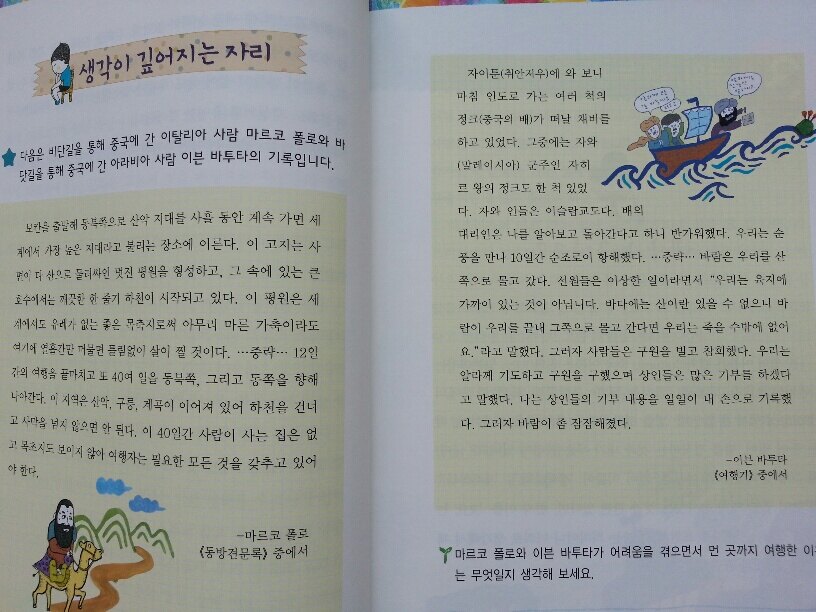 생각이 깊어지는 자리
다음은 비단길을 통해 중국에 간 이탈리아 사람 마르코 폴로와 바
닷길을 통해 중국에 간 아라비아 사람 이븐 바투타의 기록입니다.
보칸을 출발해 동북쪽으로 산악 지대를 사흘 동안 계속 가면 세
계에서 가장 높은 지대라고 불리는 장소에 이른다. 이 고지는 사
면이 다 산으로 둘러싸인 멋진 평원을 형성하고, 그 속에 있는 큰
호수에서는 깨끗한 한 줄기 하천이 시작되고 있다. 이 평원은 세
계에서도 유례가 없는 좋은 목축지로써 아무리 마른 가축이라도
여기에 열흘간만 머물면 틀림없이 살이 찔 것이다. …중략… 12일
간의 여행을 끝마치고 또 40여 일을 동북쪽, 그리고 동쪽을 향해
나아간다. 이 지역은 산악, 구릉, 계곡이 이어져 있어 하천을 건너
고 사막을 넘지 않으면 안 된다. 이 40일간 사람이 사는 집은 없
고 목초지도 보이지 않아 여행자는 필요한 모든 것을 갖추고 있어
야 한다.
-마르코 폴로
《동방견문록》 중에서
자이툰(취안저우)에 와 보니
마침 인도로 가는 여러 척의
정크(중국의 배)가 떠날 채비를
하고 있었다. 그중에는 자와
(말레이시아) 군주인 자히
르 왕의 정크도 한 척 있었
다. 자와 인들은 이슬람교도다. 배의
대리인은 나를 알아보고 돌아간다고 하니 반가워했다. 우리는 순
풍을 만나 10일간 순조로이 항해했다. …중략… 바람은 우리를 산
쪽으로 몰고 갔다. 선원들은 이상한 일이라면서 "우리는 육지에
가까이 있는 것이 아닙니다. 바다에는 산이란 있을 수 없으니 바
람이 우리를 끝내 그쪽으로 몰고 간다면 우리는 죽을 수밖에 없어
요."라고 말했다. 그러자 사람들은 구원을 빌고 참회했다. 우리는
알라께 기도하고 구원을 구했으며 상인들은 많은 기부를 하겠다
고 말했다. 나는 상인들의 기부 내용을 일일이 내 손으로 기록했
다. 그리자 바람이 좀 잠잠해졌다.
-이븐 바투타
《여행기》 중에서
마르코 폴로와 이븐 바투타가 어려움을 겪으면서 먼 곳까지 여행한
는 무엇일지 생각해 보세요.